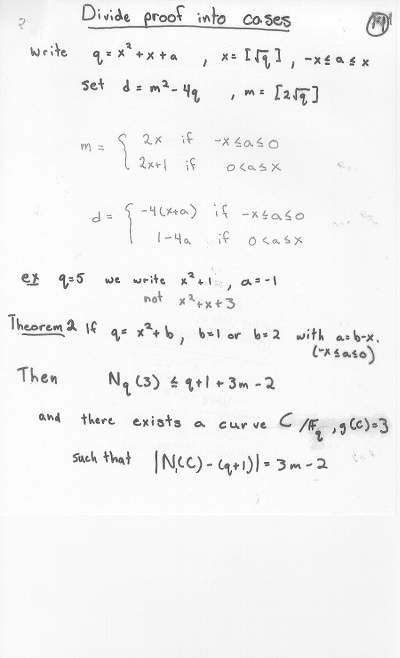 Divide proof into cases
write q = x² + x + a , x = [√q] , -x ≤ a ≤ x
set d = m² - 4q , m = [2√q]
m = { 2x if -x ≤ a ≤ 0
2x+1 if 0 < a ≤ x
d = { -4(x+a) if -x ≤ a ≤ 0
1-4a if 0 < a ≤ x
ex q=5 we write x²+1 , a=-1
not x²+x+3
Theorem 2 If q = x²+b, b=1 or b=2 with a=b-x.
(-x ≤ a ≤ 0)
Then Nq(3) ≤ q+1+3m-2
and there exists a curve C/Fq , g(C)=3
such that |N(C) - (q+1)| = 3m-2